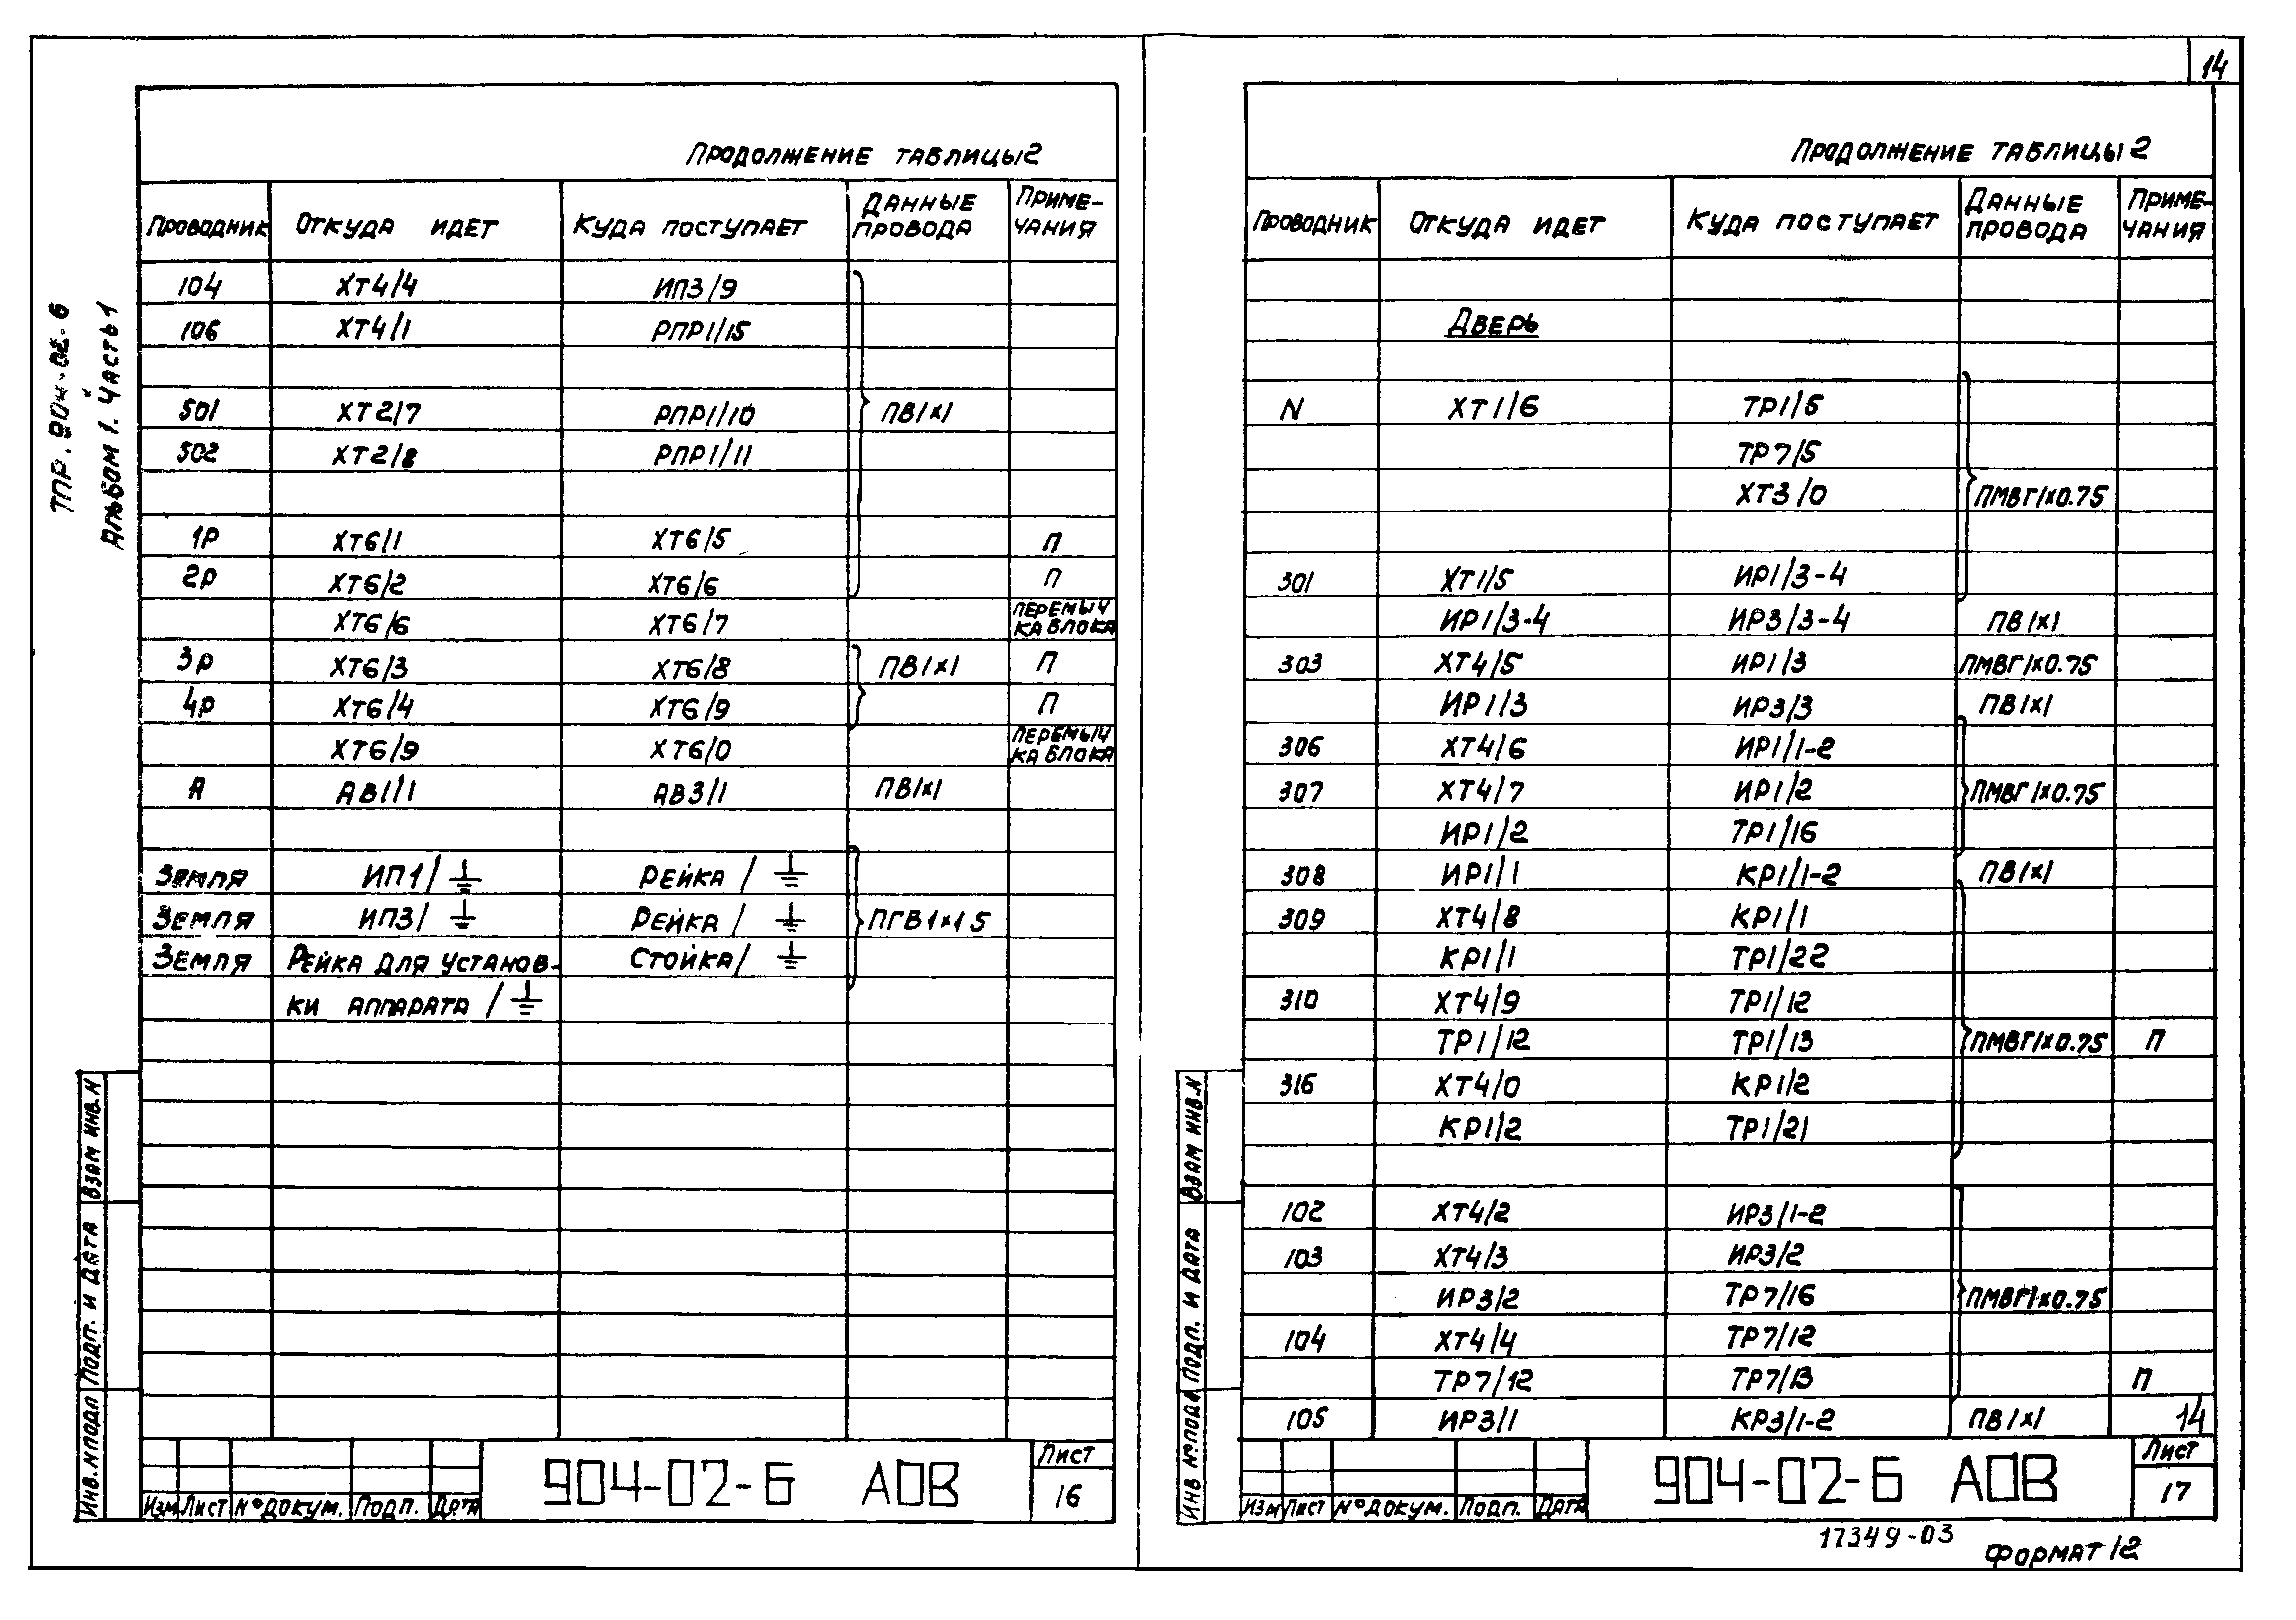 14
ТПР. 904-02-6
Альбом 1. Часть 1
Продолжение таблицы 2
Проводник | Откуда идет | Куда поступает | Данные провода | Приме-чания
104 | ХТ4/4 | ИП3/9
106 | ХТ4/1 | РПР1/15
501 | ХТ2/7 | РПР1/10 | ПВ1х1
502 | ХТ2/8 | РПР1/11
1Р | ХТ6/1 | ХТ6/5 | П
2Р | ХТ6/2 | ХТ6/6 | П
ХТ6/6 | ХТ6/7 | Перемыч ка блока
3Р | ХТ6/3 | ХТ6/8 | ПВ1х1 | П
4Р | ХТ6/4 | ХТ6/9 | П
ХТ6/9 | ХТ6/0 | Перемыч ка блока
А | АВ1/1 | АВ3/1 | ПВ1х1
Земля | ИП1/⏚ | Рейка/⏚
Земля | ИП3/⏚ | Рейка/⏚ | ПГВ1х1 5
Земля | Рейка для установ- | Стойка/⏚
ки аппарата/⏚
Инв.№подл Подп. и дата Взам инв.N
Изм Лист №докум. Подп. Дата
904-02-6 АОВ
Лист
16
Продолжение таблицы 2
Проводник | Откуда идет | Куда поступает | Данные провода | Приме-чания
Дверь
N | ХТ1/6 | ТР1/5
ТР7/5
ХТ3/0 | ПМВГ1х0.75
301 | ХТ1/5 | ИР1/3-4
ИР1/3-4 | ИР3/3-4 | ПВ1х1
303 | ХТ4/5 | ИР1/3 | ПМВГ1х0.75
ИР1/3 | ИР3/3 | ПВ1х1
306 | ХТ4/6 | ИР1/1-2
307 | ХТ4/7 | ИР1/2 | ПМВГ1х0.75
ИР1/2 | ТР1/16
308 | ИР1/1 | КР1/1-2 | ПВ1х1
309 | ХТ4/8 | КР1/1
КР1/1 | ТР1/22
310 | ХТ4/9 | ТР1/12
ТР1/12 | ТР1/13 | ПМВГ1х0.75 | П
316 | ХТ4/0 | КР1/2
КР1/2 | ТР1/21
102 | ХТ4/2 | ИР3/1-2
103 | ХТ4/3 | ИР3/2
ИР3/2 | ТР7/16 | ПМВГ1х0.75
104 | ХТ4/4 | ТР7/12
ТР7/12 | ТР7/13 | П
105 | ИР3/1 | КР3/1-2 | ПВ1х1 | 14
Инв №подл Подп. и дата Взам инв.N
Изм Лист №докум. Подп. Дата
904-02-6 АОВ
Лист
17
17349-03
Формат 12